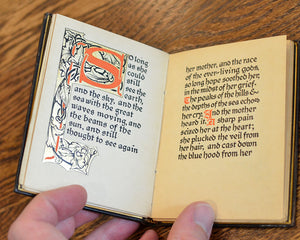 So long
as she
could
still
see the
earth,
and the sky, and the
sea with the great
waves moving, and
the beams of the
sun, and still
thought to see again
her mother, and the race
of the ever-living gods,
so long hope soothed her,
in the midst of her grief.
The peaks of the hills &
the depths of the sea echoed
her cry. And the mother
heard it. A sharp pain
seized her at the heart;
she plucked the veil from
her hair, and cast down
the blue hood from her